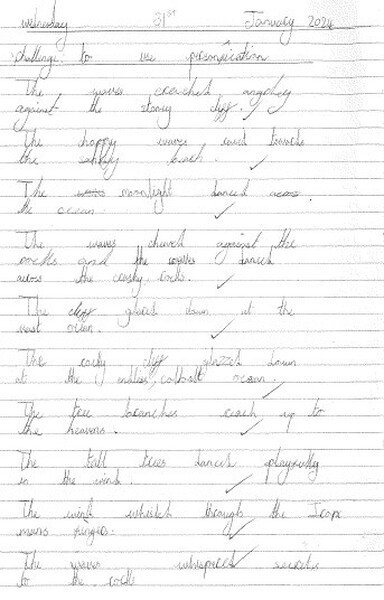 wednesday 31st January 2024
challenge: to use personification
The waves crached angrley
against the stoney cliff.
The choppy waves towards
the sandy beach.
The moonlight danced across
the ocean
The waves against the
rocks and the waves danced
across the rocks.
The cliff down at the
vast ocean.
The rocky cliff down
at the endless ocean.
The tree branches reach up to
the heavens.
The tall trees danced playfully
in the wind.
The wind through the
mans fingers.
The waves whispered secrets
to the rocks